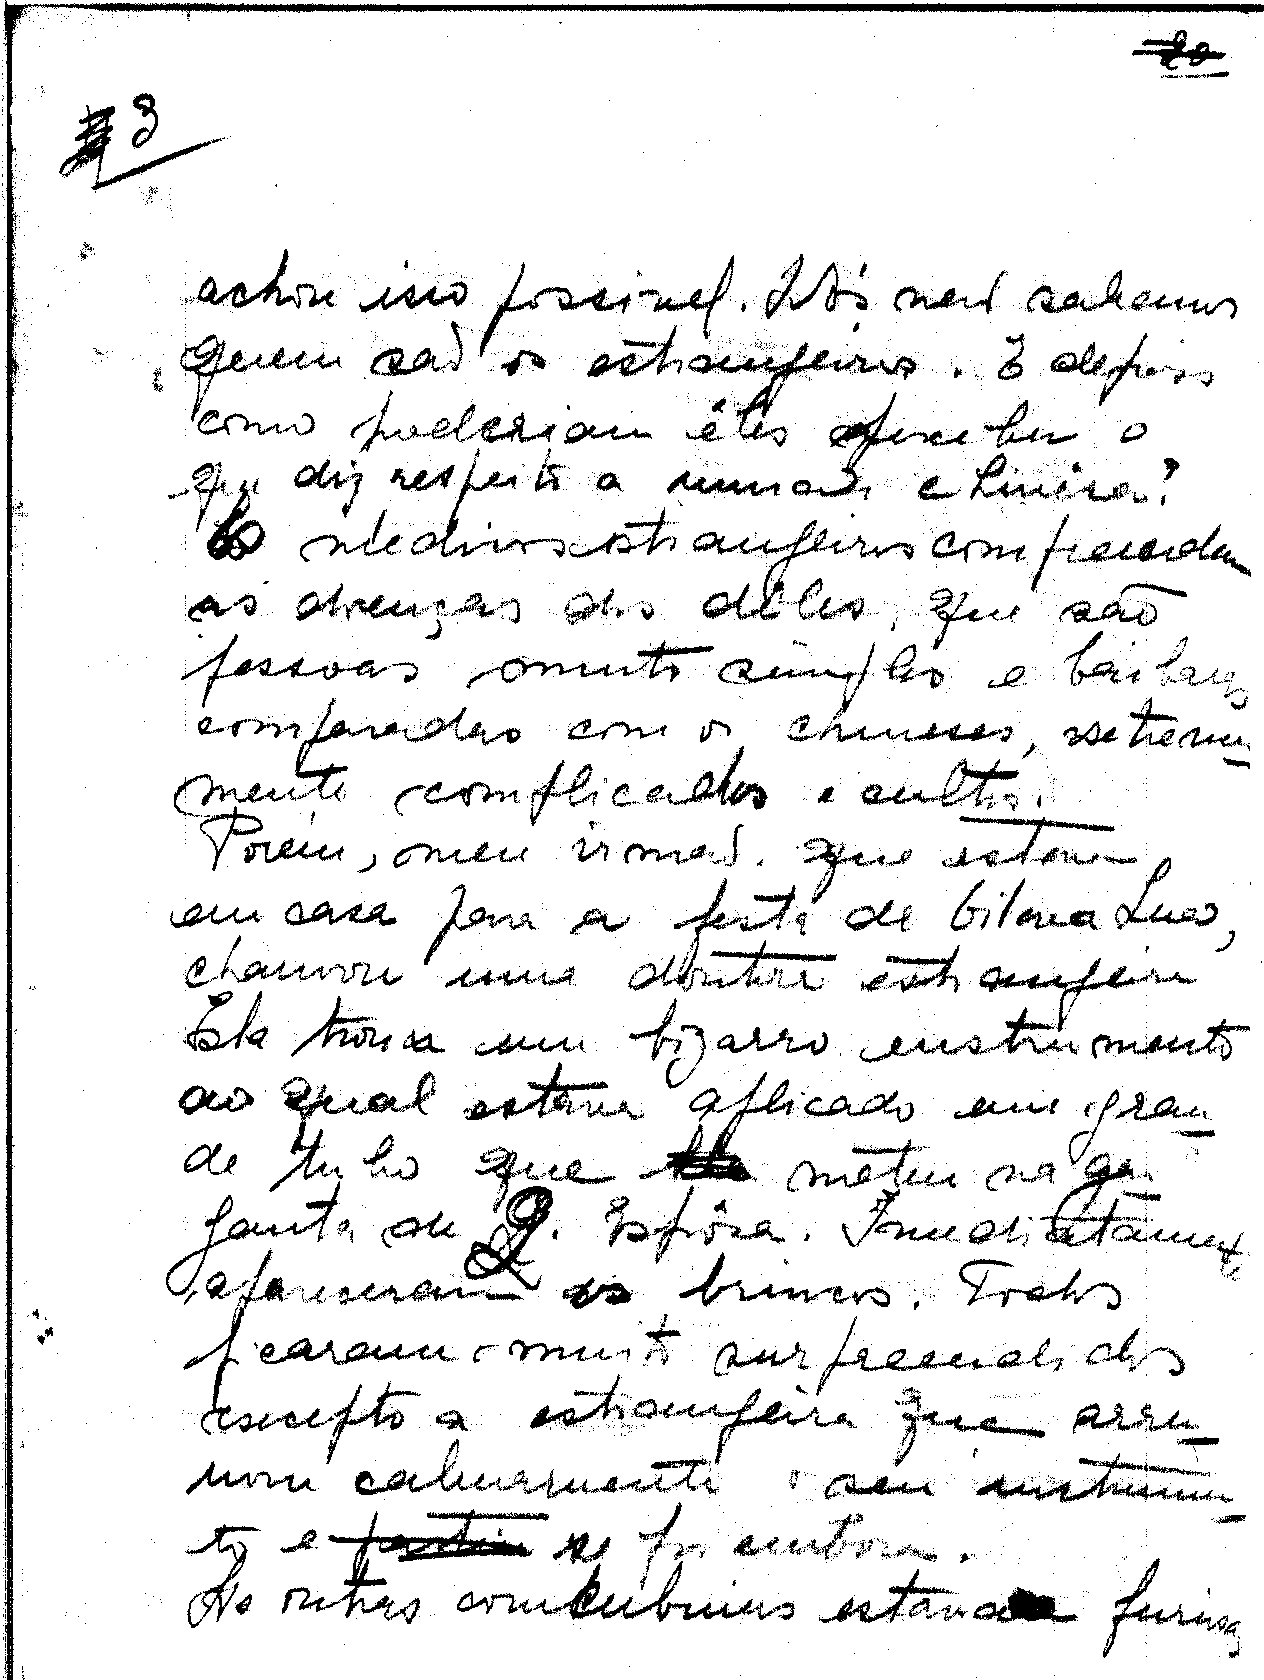 20
3
achou isso possivel. Nós não sabemos
quem são os estrangeiros. E depois
como poderiam êles perceber o
que diz respeito a uma chinesa?
Os medicos estrangeiros comprendem
as doenças dos dêles, que são
pessoas muito simples e barbaras
comparadas com os chineses, extrema_
mente complicados e cultos.
Porém, meu irmão, que estava
em casa para a festa de Oitava Lua,
chamou uma doutora estrangeira
Ela trouxe um bizarro enstrumento
ao qual estava aplicado um gran_
de tubo que meteu na gar
ganta da Q. Espôsa. Imediatamente
apareseram os brincos. Todos
ficaram muito surpreendidos
excepto a estrangeira que arru_
mou calmamente o seu instrumen_
to e partiu se foi embora.
As outras concubinas estavam furiosas